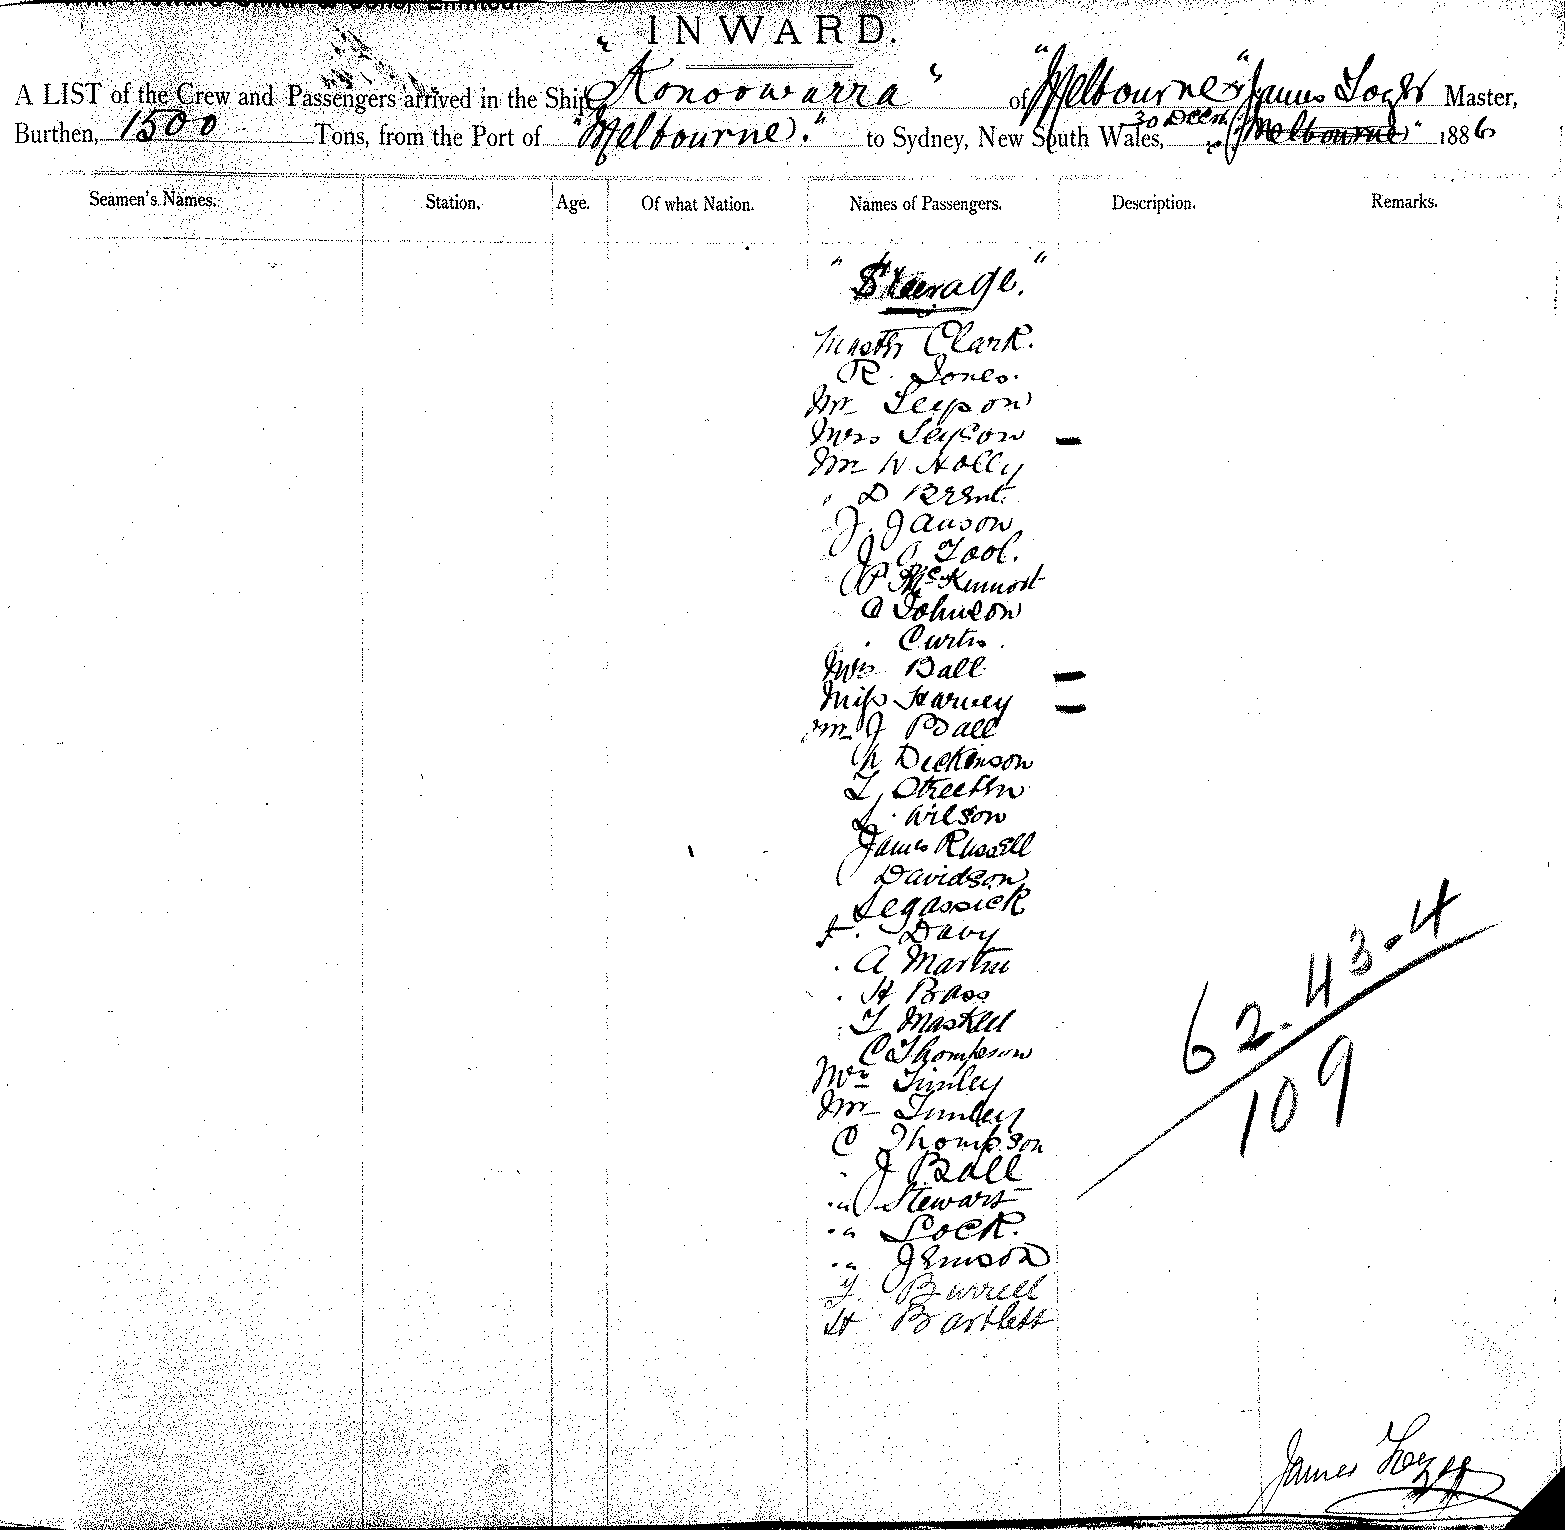 INWARD.
A LIST of the Crew and Passengers arrived in the Ship "Konoowarra" of "Melbourne" James Master,
Burthen, 1500 Tons, from the Port of "Melbourne." to Sydney, New South Wales, 30 Decm 1886
Seamen's Names. Station. Age. Of what Nation. Names of Passengers. Description. Remarks.
"Steerage."
Master Clark.
R. Jones.
Mr Leyson
Mrs Leyson
Mr W Holly
" D Brent.
J. Janson
J C Tool.
P
C Johnson
Curtis.
Mrs Ball
Miss Harvey
Mr J Ball
Dickinson
T Streeten
Wilson
James Russell
Davidson
Legassick
Davy
A Martin
H Bass
T Maskell
C Thompson
Mrs Tinley
Mr Tinley
C Thompson
J Ball
" Stewart
" Lock.
" Jemson
Burrell
H Bartlett
62.43.4
109
James